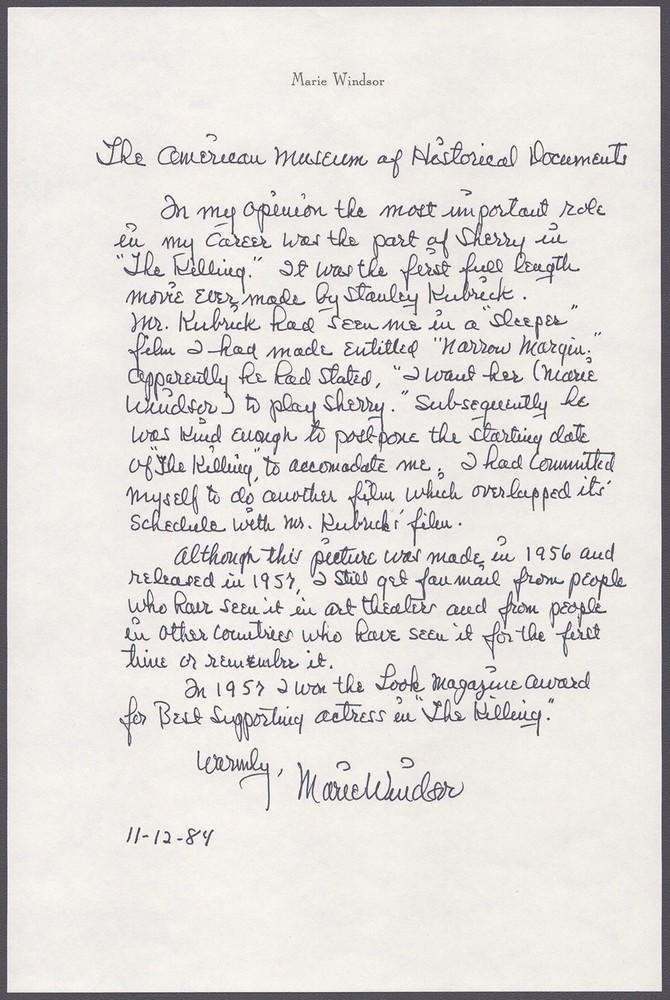 Marie Windsor
The American Museum of Historical Documents
In my opinion the most important role
in my career was the part of Sherry in
"The Killing." It was the first full length
movie ever made by Stanley Kubrick.
Mr. Kubrick had seen me in a "sleeper"
film I had made entitled "Narrow Margin."
Apparently he had stated, "I want her (Marie
Windsor) to play Sherry." Subsequently he
was kind enough to postpone the starting date
of "The Killing" to accomodate me. I had committed
myself to do another film which overlapped its'
schedule with Mr. Kubricks' film.
Although this picture was made in 1956 and
released in 1957, I still get fan mail from people
who have seen it in art theaters and from people
in other countries who have seen it for the first
time or remember it.
In 1957 I won the Look Magazine award
for Best Supporting actress in "The Killing."
Warmly,
Marie Windsor
11-12-84